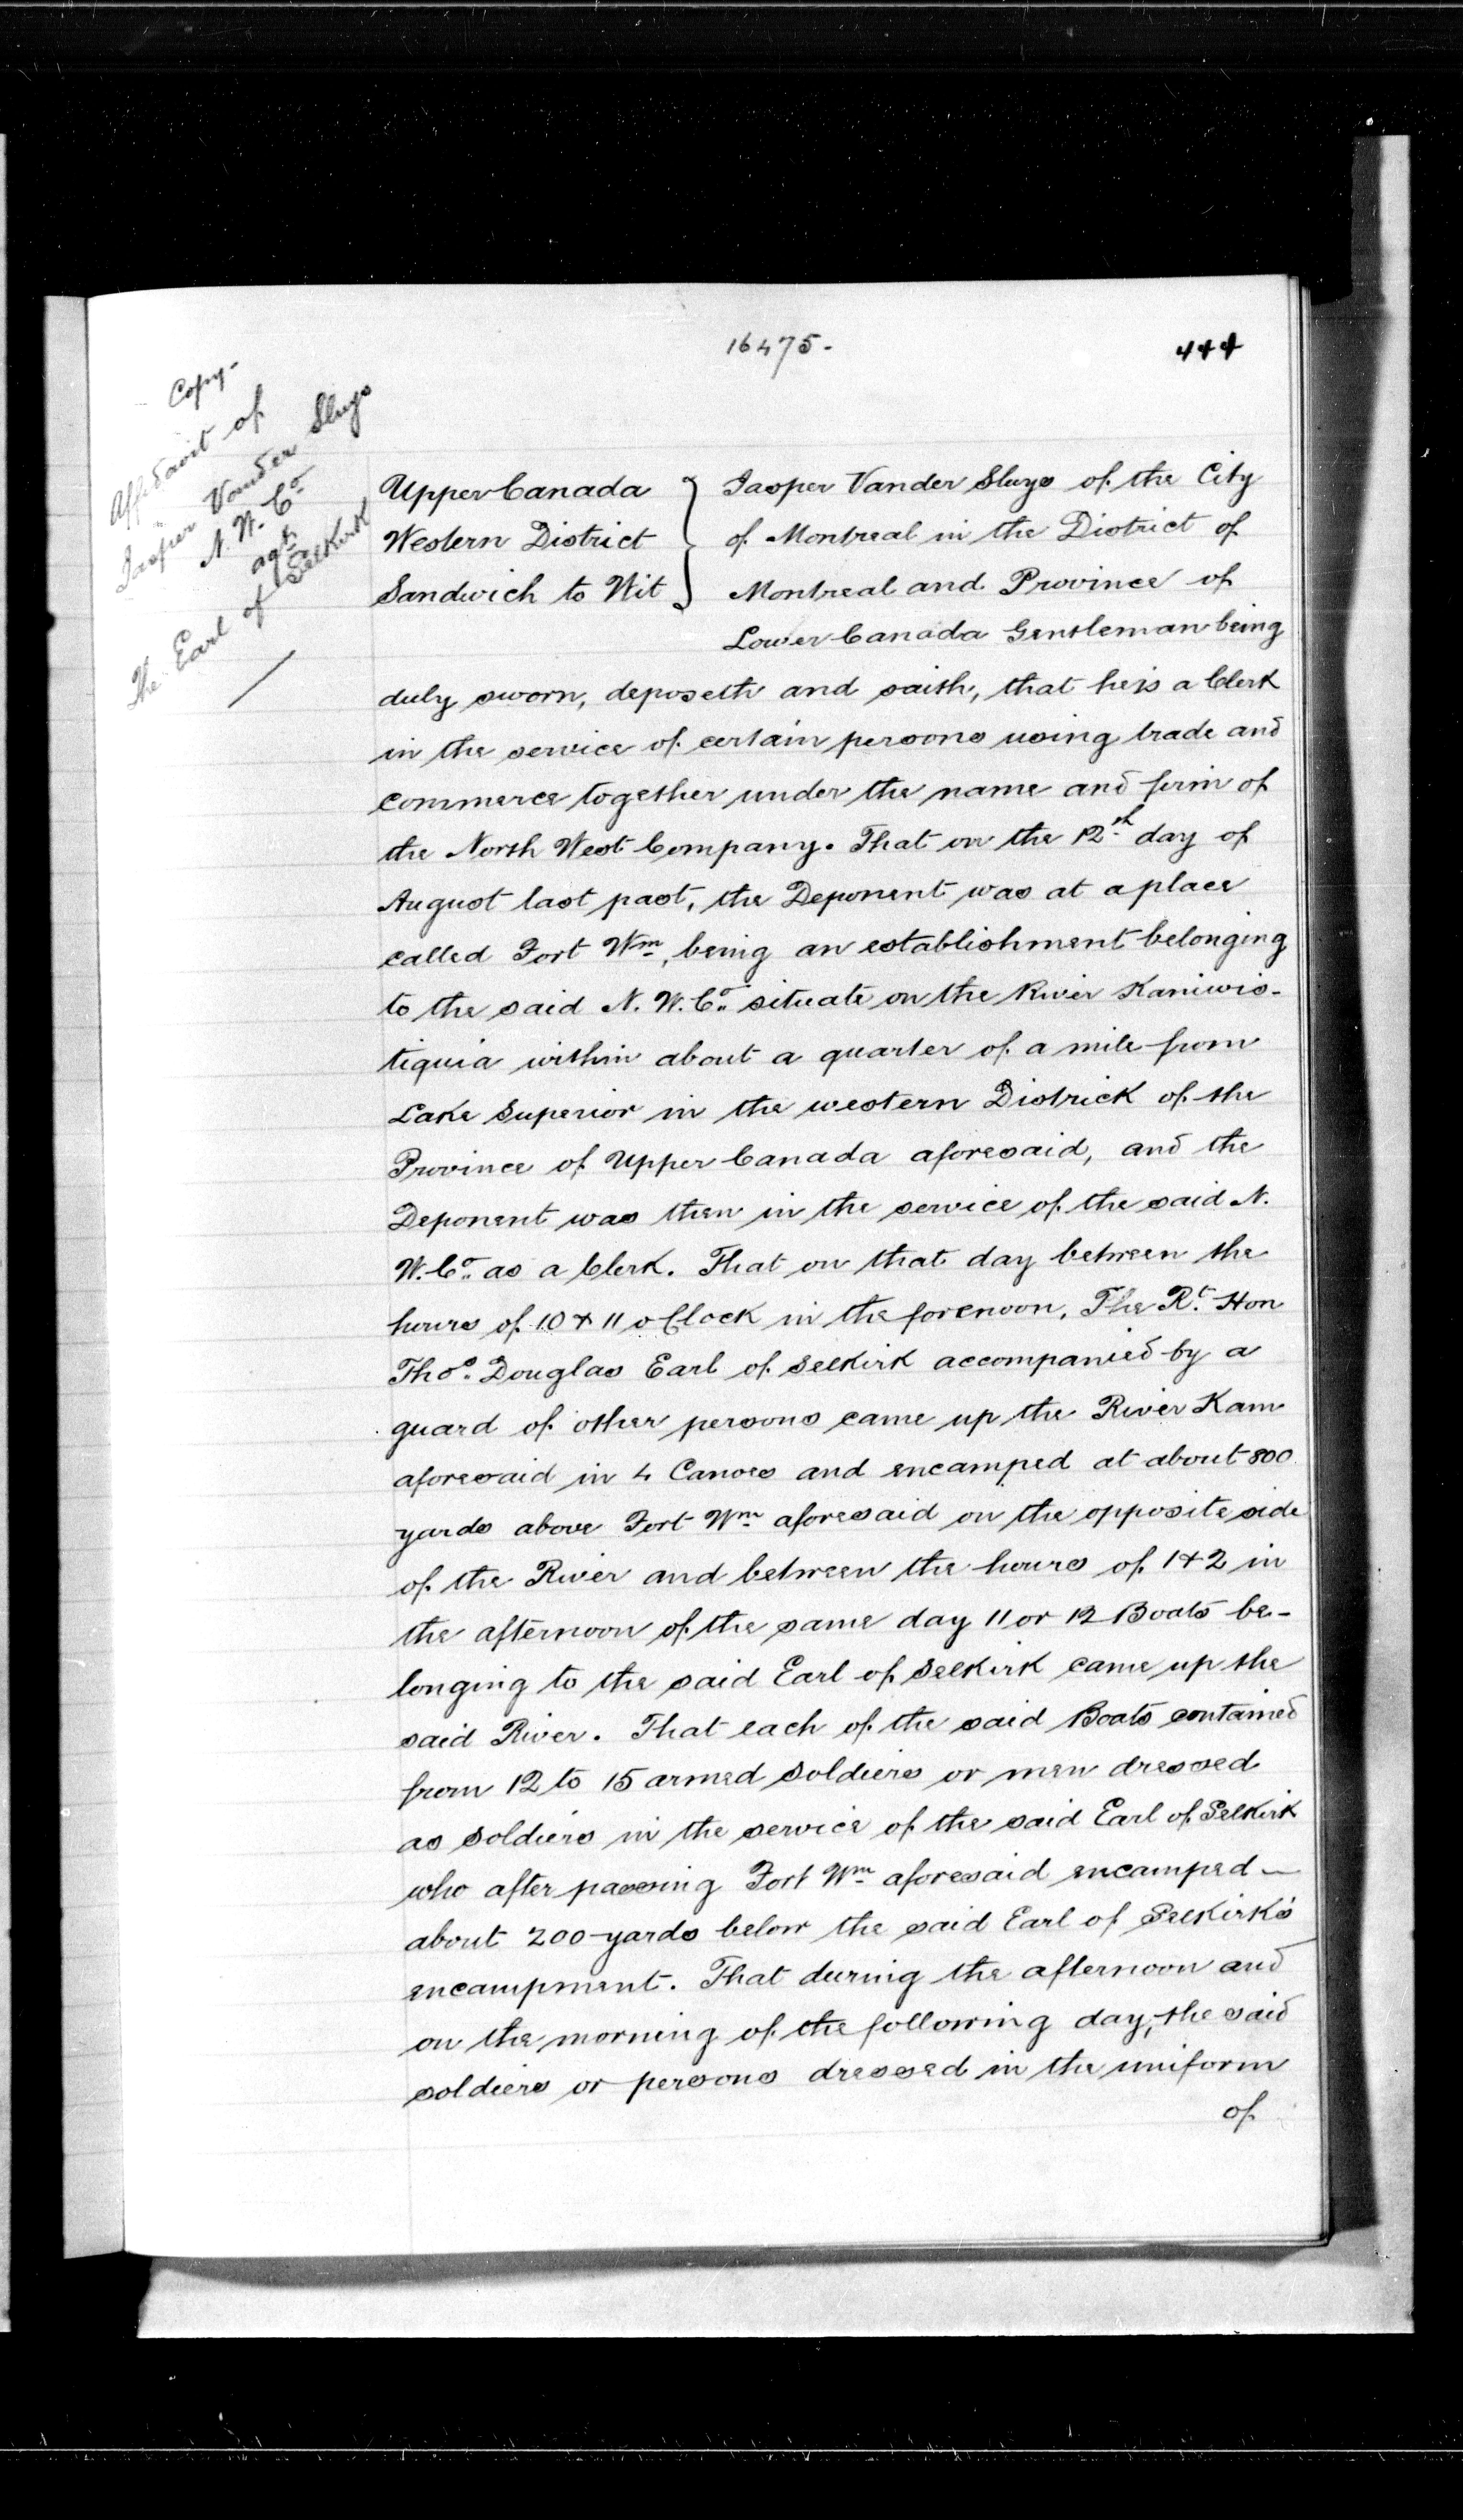 16475.
444
Copy.
Affidavit of
Jasper Vander Sluys
N. W. Co
agt
The Earl of Selkirk
Upper Canada } Jasper Vander Sluys of the City
Western District } of Montreal in the District of
Sandwich to Wit } Montreal and Province of
Lower Canada Gentleman being
duly sworn, deposeth and saith, that he is a Clerk
in the service of certain persons using trade and
commerce together under the name and firm of
the North West Company. That on the 12th day of
August last past, the Deponent was at a place
called Fort Wm, being an establishment belonging
to the said N. W. Co. situate on the River Kaniwis-
tiquia within about a quarter of a mile from
Lake Superior in the western Districk of the
Province of Upper Canada aforesaid, and the
Deponent was then in the service of the said N.
W. Co. as a Clerk. That on that day between the
hours of 10 & 11 o Clock in the forenoon, The Rt. Hon
Thos. Douglas Earl of Selkirk accompanied by a
guard of other persons came up the River Kam
aforesaid in 4 Canoes and encamped at about 800
yards above Fort Wm aforesaid on the opposite side
of the River and between the hours of 1 & 2 in
the afternoon of the same day 11 or 12 Boats be-
longing to the said Earl of Selkirk came up the
said River. That each of the said Boats contained
from 12 to 15 armed soldiers or men dressed
as soldiers in the service of the said Earl of Selkirk
who after passing Fort Wm aforesaid encamped
about 200 yards below the said Earl of Selkirk's
encampment. That during the afternoon and
on the morning of the following day, the said
soldiers or persons dressed in the uniform
of